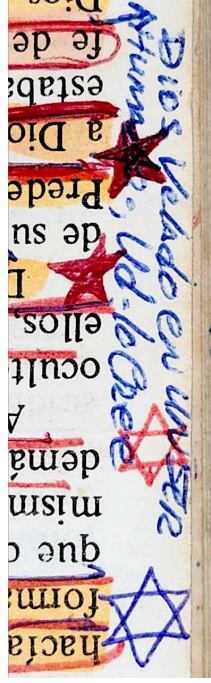 hacía
forma
que
mism
demás
A
ocult
ellos,
D
de su
Prede
a Dio
estaba
fe de
Dios
Dios Velado en un SER
Ud. lo Cree